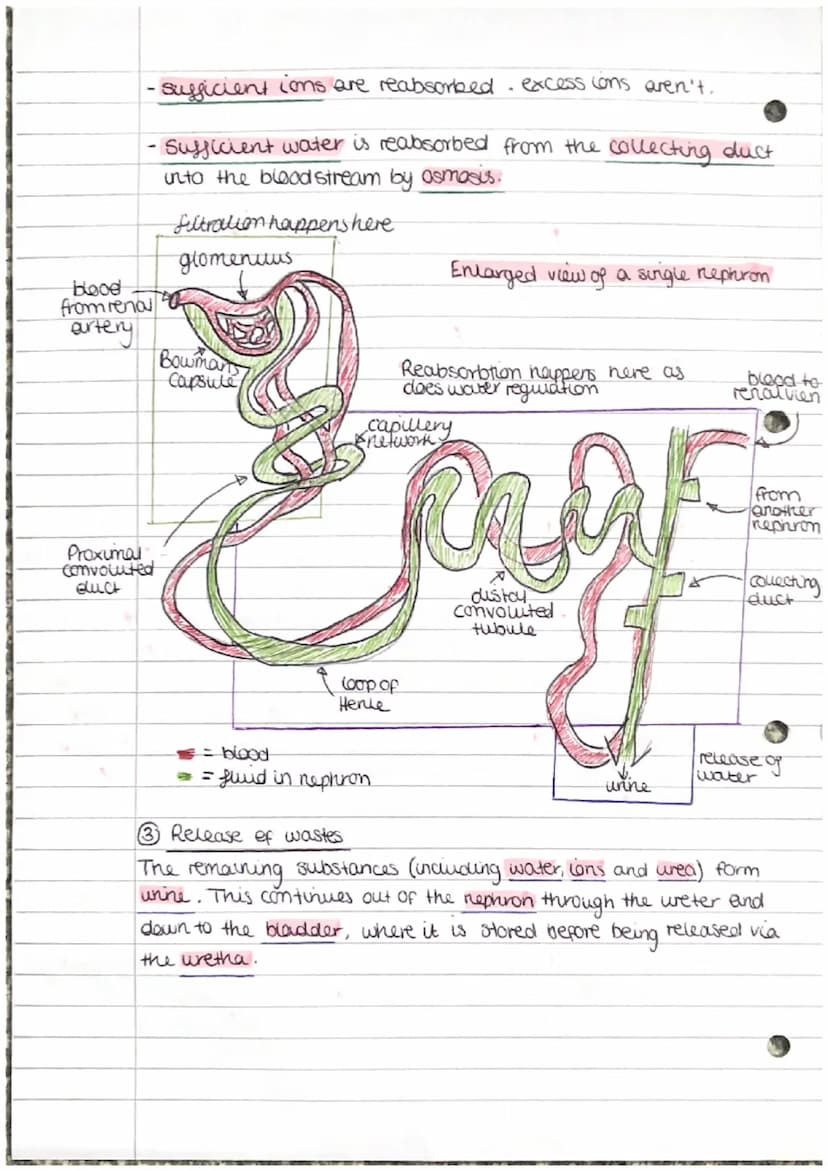 - Sufficient ions are reabsorbed. excess ions aren't.
- Sufficient water is reabsorbed from the collecting duct
into the bloodstream by osmosis.
filtration happens here
glomeruus
Enlarged view of a single nephron
blood
from renal
artery
Bowman's
Capsule
Reabsorbtion happens here as
does water regulation
blood to
renal vien
capillary
network
from
another
nephron
Proximal
convoluted
duct
distal
convoluted
tubule
collecting
duct
loop of
Henle
= blood
= fluid in nephron
release of
water
urine
③ Release of wastes
The remaining substances (including water, ions and urea) form
urine. This continues out of the nephron through the ureter and
down to the bladder, where it is stored before being released via
the uretha.